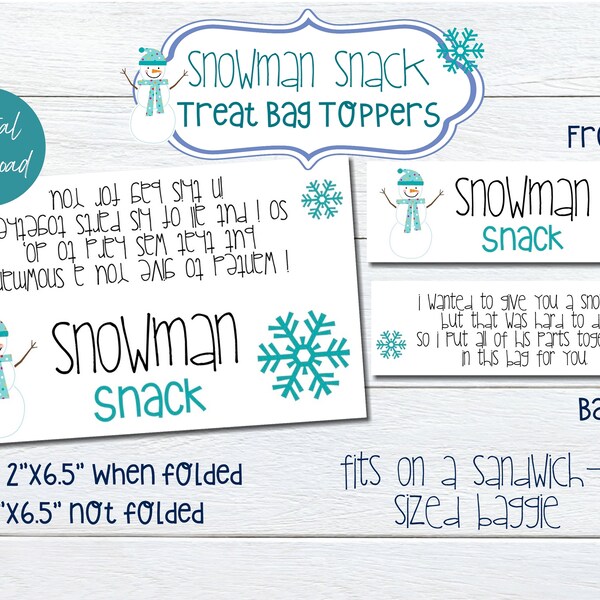 Snowman Snack
Treat Bag Toppers
I wanted to give you a snowman
but that was hard to do,
so I put all of his parts together
in this bag for you
snowman
snack
snowman
snack
I wanted to give you a sno
but that was hard to d
so I put all of his parts toge
in this bag for you
2"x6.5" when folded
"x6.5" not folded
fits on a sandwich-
sized baggie